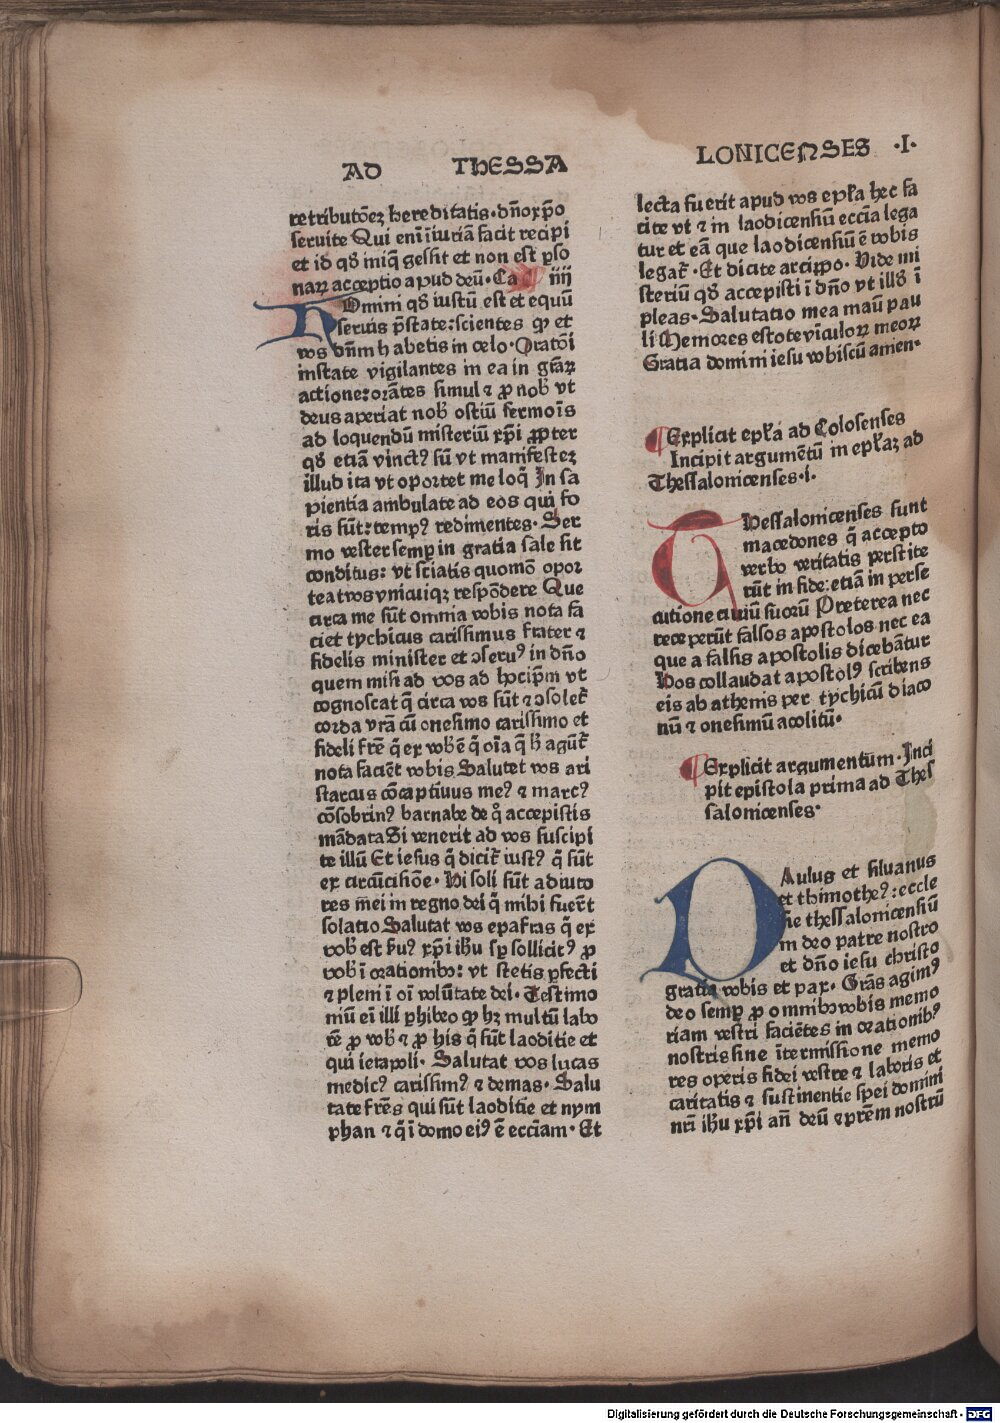 AD THESSA
retributōeꝫ hereditatis·dño xp̄o
seruite Qui eni īiuriā facit recipi
et id qđ iniq̄ gessit et non est ꝑso
naꝝ acceptio apud deū·Ca iiij
Domini qđ iustū est et equū
seruis p̄state:scientes ꝙ et
vos dn̄m habetis in celo·Oratōi
instate vigilantes in ea in gr̄aꝝ
actione:orātes simul ⁊ ꝓ nob̓ vt
deus aperiat nob̓ ostiū sermoīs
ad loquendū misteriū xp̄i ꝓpter
qđ etiā vinctꝰ sū vt manifesteꝫ
illud ita vt oportet me loq̄ In sa
pientia ambulate ad eos qui fo
ris sūt:tempꝰ redimentes·Ser
mo vester semꝑ in gratia sale sit
conditus: vt sciatis quomō opor
teat vos vnicuiqꝫ respōdere Que
circa me sūt omnia vobis nota fa
ciet tychicus carissimus frater ⁊
fidelis minister et ↄseruꝰ in dn̄o
quem misi ad vos ad hoc ip̄m vt
cognoscat q̄ circa vos sūt ⁊ ↄsolet̄
corda vr̄a cū onesimo carissimo et
fideli fr̄e q̄ ex vob̓ ē q̄ oīa q̄ h̓ agūt̄
nota faciēt vobis Salutet vos ari
starcus cōcaptiuus meꝰ ⁊ marcꝰ
cōsobrinꝰ barnabe de q̊ accepistis
mādata Si venerit ad vos suscipi
te illū Et iesus q̄ dicit̄ iustꝰ q̄ sūt
ex circūcisiōe·Hi soli sūt adiuto
res mei in regno dei q̄ mihi fuer̄t
solatio Salutat vos epafras q̄ ex
vob̓ est s̓uꝰ xp̄i ih̄u sꝑ sollicitꝰ ꝓ
vob̓ ī orationibꝰ: vt stetis ꝑfecti
⁊ pleni ī oī volūtate dei·Testimo
niū eī illi ꝑhibeo ꝙ hꝫ multū labo
rē ꝓ vob̓ ⁊ ꝓ his q̄ sūt laoditie et
qui ierapoli· Salutat vos lucas
medicꝰ carissimꝰ ⁊ demas· Salu
tate fr̄es qui sūt laoditie et nym
phan ⁊ q̄ ī domo eiꝰ ē eccl̄iam· Et
LONICENSES ·I·
lecta fuerit apud vos epl̄a hec fa
cite vt ⁊ in laodicensiū eccl̄ia lega
tur et eā que laodicensiū ē vobis
legat̄·Et dicite arcippo· Vide mi
steriū qđ accepisti ī dn̄o vt illđ ī
pleas·Salutatio mea manū pau
li Memores estote vīculoꝝ meoꝝ
Gratia domini iesu vobiscū amen·
¶Explicit epl̄a ad Colosenses
Incipit argumētū in epl̄aꝫ ad
Thessalonicenses·i·
Thessalonicenses sunt
macedones q̄ accepto
verbo veritatis perstite
rūt in fide: etiā in perse
cutione ciuiū suorū Preterea nec
receperūt falsos apostolos nec ea
que a falsis apostolis dicebātur
Hos collaudat apostolꝰ scribens
eis ab athenis per tychicū diaco
nū ⁊ onesimū acolitū·
¶Explicit argumentum·Inci
pit epistola prima ad Thes
salonicenses·
PAulus et siluanus
et thimotheꝰ: eccle
sie thessalonicensiū
in deo patre nostro
et dn̄o iesu christo
gratia vobis et pax· Gr̄as agimꝰ
deo semꝑ ꝓ omnibꝰ vobis memo
riam vestri faciētes in orationibꝰ
nostris sine ītermissione memo
res operis fidei vestre ⁊ laboris et
caritatis ⁊ sustinentie spei domini
nr̄i ih̄u xp̄i an̄ deū ⁊ pr̄em nostrū
Digitalisierung gefördert durch die Deutsche Forschungsgemeinschaft - DFG